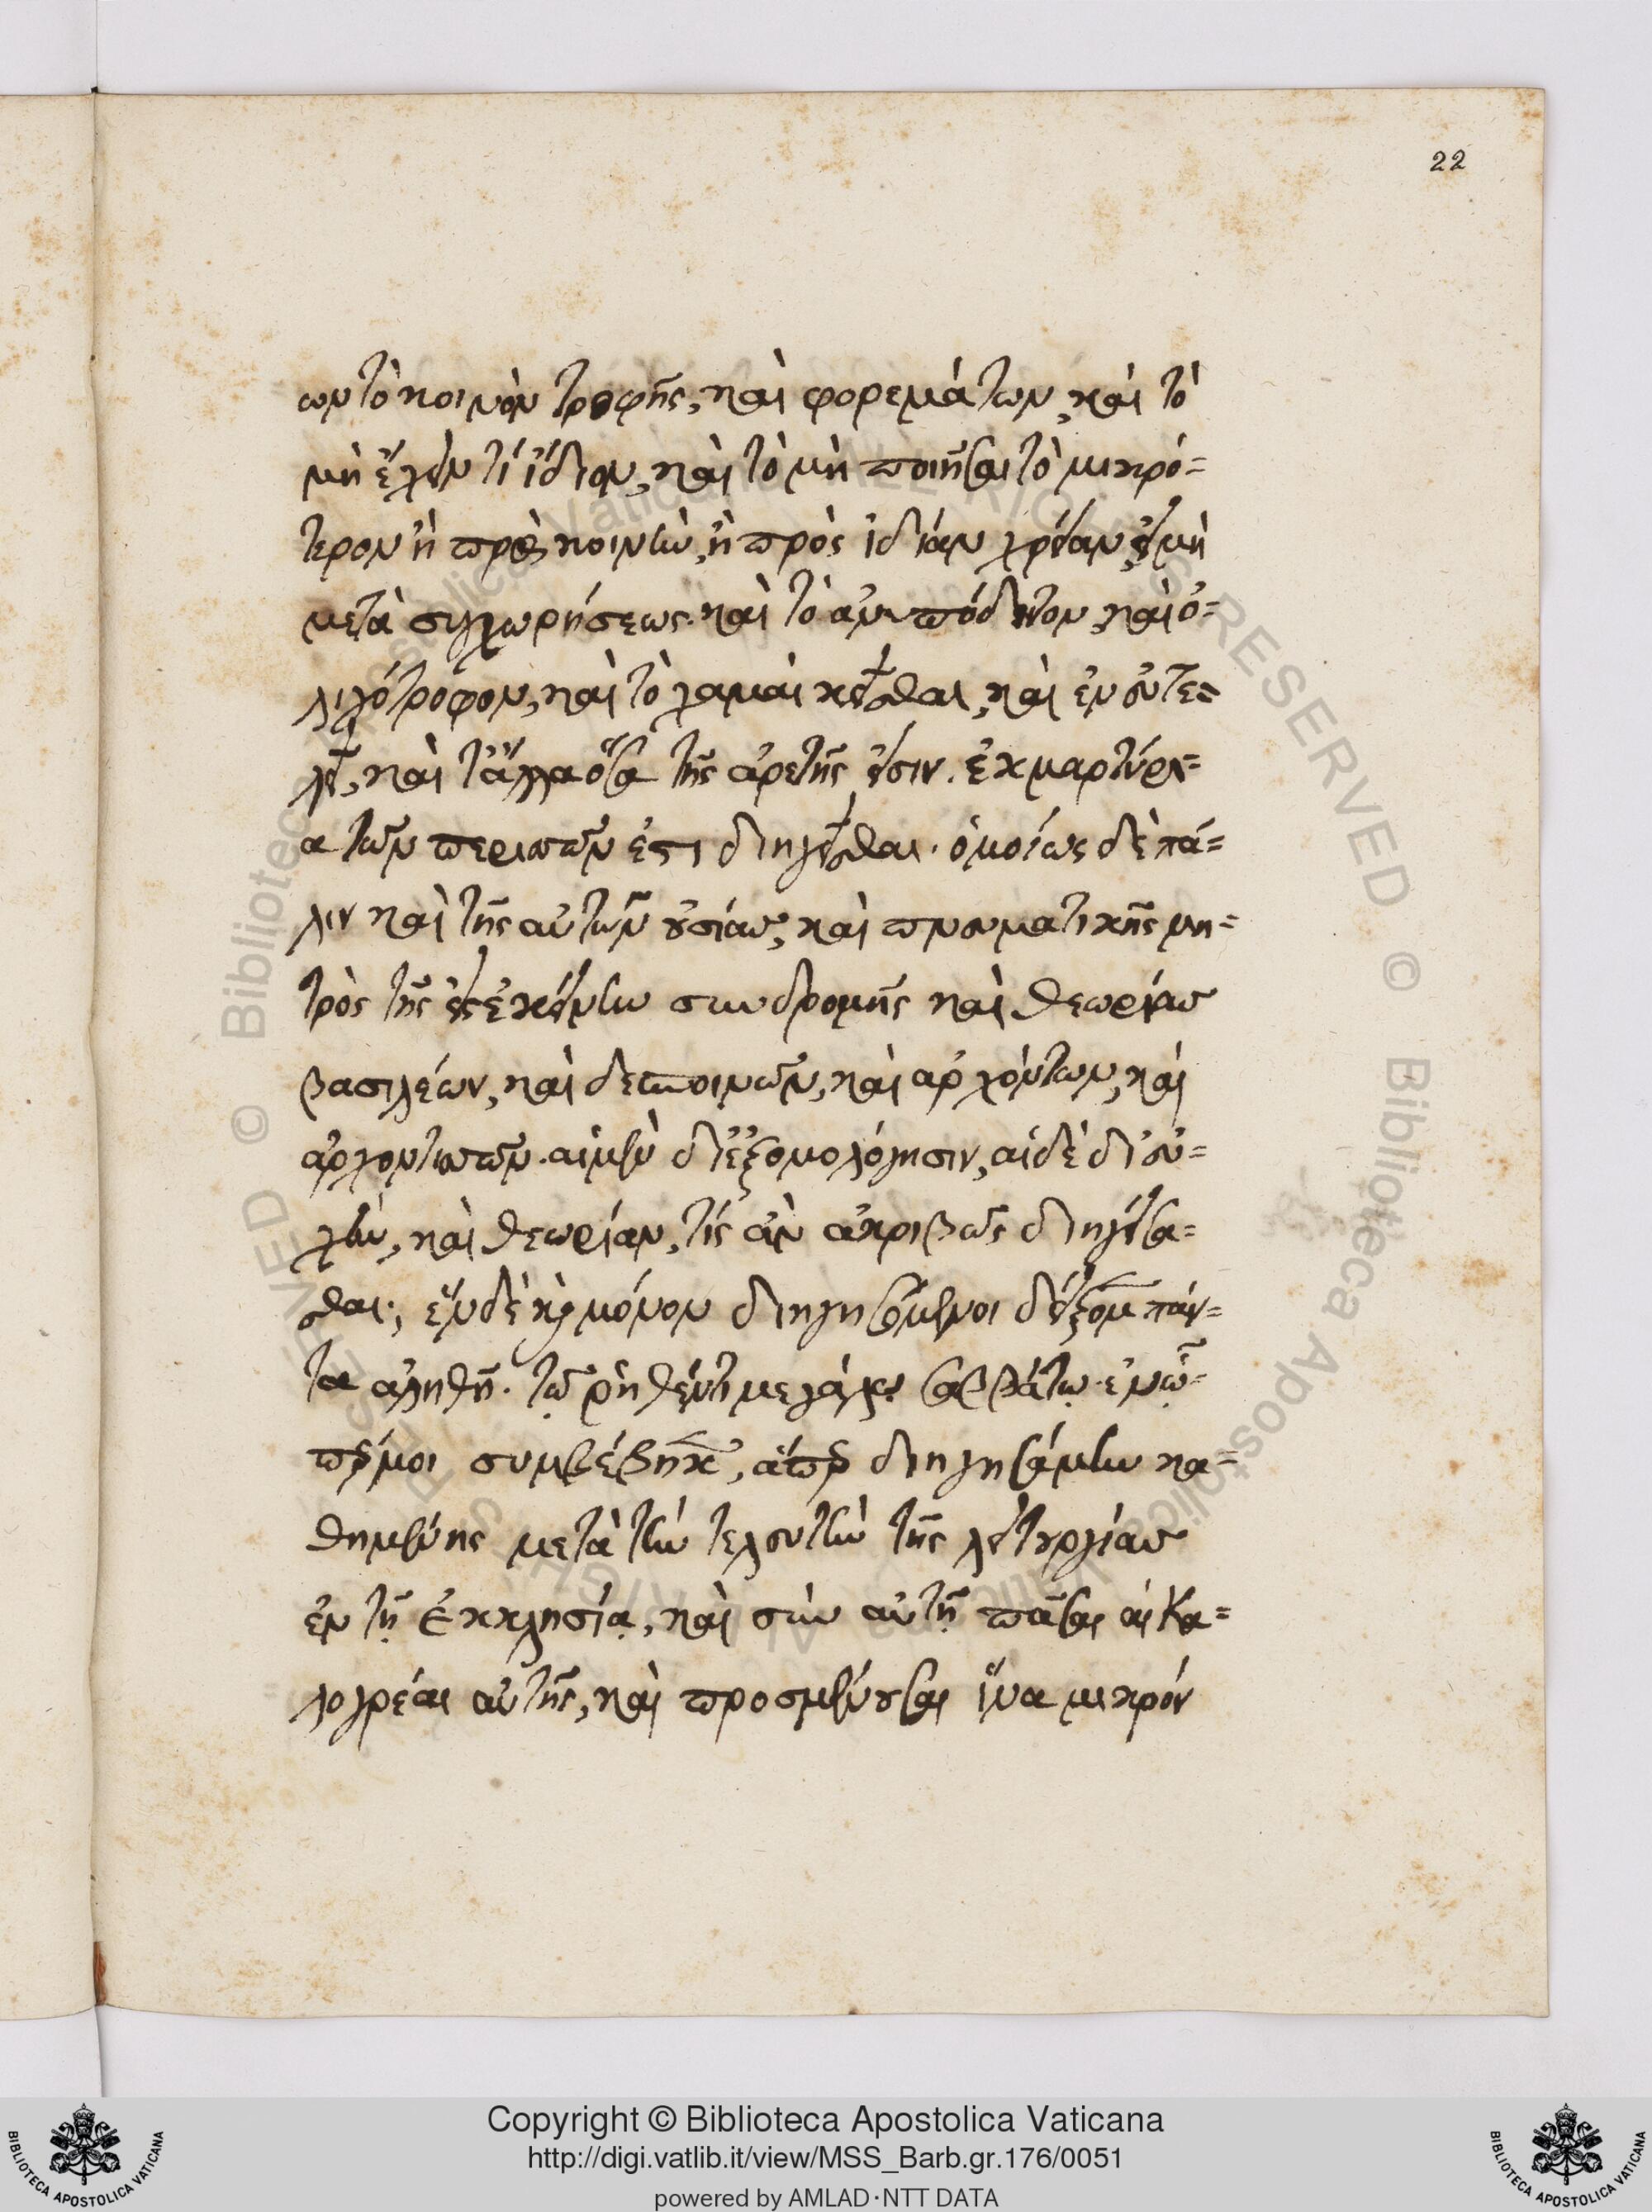 22
ων τὸ κοινὸν τροφῆς, καὶ φορεμάτων, καὶ τὸ
μὴ ἔχειν τί ἴδιον, καὶ τὸ μὴ ποιῆσαι τὸ μικρό=
τερον ἢ πρὸς κοινὴν, ἢ πρὸς ἰδίαν χρείαν, εἰ μὴ
μετὰ συγχωρήσεως. καὶ τὸ ἀνυπόδητον, καὶ ὀ=
λιγότροφον, καὶ τὸ χαμαὶ κεῖσθαι, καὶ ἐν εὐτε=
λεῖ, καὶ τἄλλα ὅσα τῆς ἀρετῆς εἰσιν.
α τῶν περιττῶν ἐστι διηγεῖσθαι. ὁμοίως δὲ πά=
λιν καὶ τῆς αὐτῶν οὐσίας, καὶ πνευματικῆς μη=
τρὸς τῆς εἰς ἐκείνην συνδρομῆς καὶ θεωρίας
βασιλέων, καὶ δεσποινῶν, καὶ ἀρχόντων, καὶ
ἀρχοντισσῶν. αἱ μὲν δι' ἐξομολόγησιν, αἱ δὲ δι' εὐ=
χὴν, καὶ θεωρίαν, τίς ἂν ἀκριβῶς διηγήσα=
σθαι; ἓν δὲ καὶ μόνον διηγησάμενοι δείξομεν πάν=
τα ἀληθῆ. τῷ ῥηθέντι μεγάλῳ σαββάτῳ. ἐν ᾧ=
περ μοι συμβέβηκεν, ἅπερ διηγησάμην κα=
θημένης μετὰ τὴν τελευτὴν τῆς λειτουργίας
ἐν τῇ Ἐκκλησίᾳ, καὶ σὺν αὐτῇ πᾶσαι αἱ Κα=
λογρέαι αὐτῆς, καὶ προσμένουσαι ἵνα μικρόν
Copyright © Biblioteca Apostolica Vaticana
http://digi.vatlib.it/view/MSS_Barb.gr.176/0051
powered by AMLAD·NTT DATA